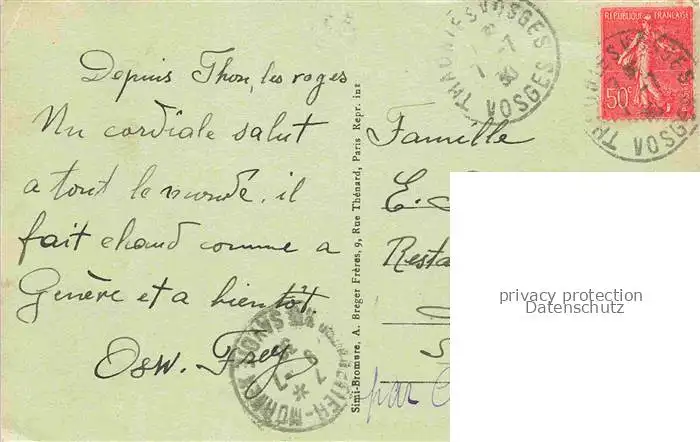 Depuis Thon, les voges
Un cordiale salut
a tout le monde. il
fait chaud comme a
Genève et a bientôt.
Osw. Frey
Simi-Bromure, A. Breger Frères, 9, Rue Thénard, Paris Repr. int
THAON LES VOSGES
VOSGES
REPUBLIQUE FRANÇAISE
50c
THAON LES VOSGES
VOSGES
Famille
E.
Resta
par
privacy protection
Datenschutz